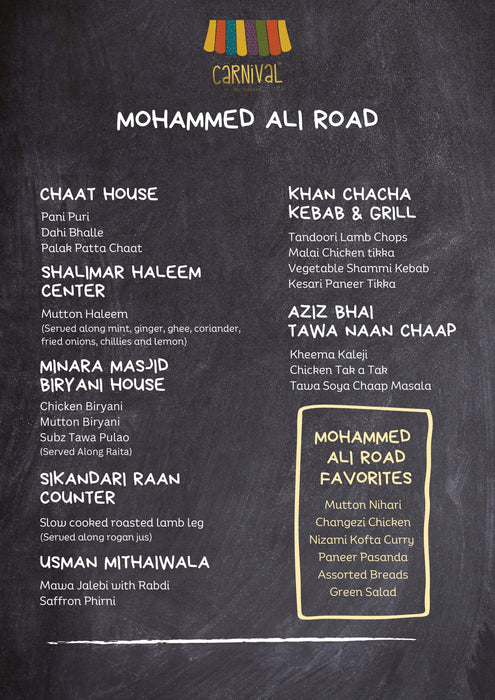 CARNIVAL
MOHAMMED ALI ROAD
CHAAT HOUSE
Pani Puri
Dahi Bhalle
Palak Patta Chaat
SHALIMAR HALEEM
CENTER
Mutton Haleem
(Served along mint, ginger, ghee, coriander,
fried onions, chillies and lemon)
MINARA MASJID
BIRYANI HOUSE
Chicken Biryani
Mutton Biryani
Subz Tawa Pulao
(Served Along Raita)
SIKANDARI RAAN
COUNTER
Slow cooked roasted lamb leg
(Served along rogan jus)
USMAN MITHAIWALA
Mawa Jalebi with Rabdi
Saffron Phirni
KHAN CHACHA
KEBAB & GRILL
Tandoori Lamb Chops
Malai Chicken tikka
Vegetable Shammi Kebab
Kesari Paneer Tikka
AZIZ BHAI
TAWA NAAN CHAAP
Kheema Kaleji
Chicken Tak a Tak
Tawa Soya Chaap Masala
MOHAMMED
ALI ROAD
FAVORITES
Mutton Nihari
Changezi Chicken
Nizami Kofta Curry
Paneer Pasanda
Assorted Breads
Green Salad